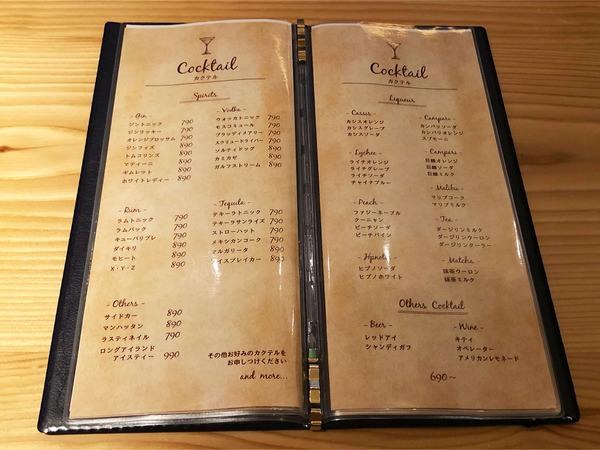 Cocktail
カクテル
Spirits
- Gin -
ジントニック 790
ジンリッキー 790
オレンジブロッサム 790
ジンフィズ 890
トムコリンズ 890
マティーニ 890
ギムレット 890
ホワイトレディー 890
- Vodka -
ウォッカトニック 790
モスコミュール 790
ブラッディメアリー 790
スクリュードライバー 790
ソルティドッグ 890
カミカゼ 890
ガルフストリーム 890
- Rum -
ラムトニック 790
ラムバック 790
キューバリブレ 790
ダイキリ 890
モヒート 890
X・Y・Z 890
- Tequila -
テキーラトニック 790
テキーラサンライズ 790
ストローハット 790
メキシカンコーク 790
マルガリータ 890
アイスブレイカー 890
- Others -
サイドカー 890
マンハッタン 890
ラスティネイル 790
ロングアイランド
アイスティー 990
その他お好みのカクテルを
お申しつけください
and more...
Cocktail
カクテル
Liqueur
- Cassis -
カシスオレンジ
カシスグレープ
カシスソーダ
- Campari -
カンパリソーダ
カンパリオレンジ
スプモーニ
- Lychee -
ライチオレンジ
ライチグレープ
ライチソーダ
チャイナブルー
- Campari -
巨峰オレンジ
巨峰ソーダ
巨峰ミルク
- Malibu -
マリブコーク
マリブミルク
- Peach -
ファジーネーブル
クーニャン
ピーチソーダ
ピーチパイン
- Tea -
ダージリンミルク
ダージリンウーロン
ダージリンクーラー
- Hpnotiq -
ヒプノソーダ
ヒプノホワイト
- Matcha -
抹茶ウーロン
抹茶ミルク
Others Cocktail
- Beer -
レッドアイ
シャンディガフ
- Wine -
キティ
オペレーター
アメリカンレモネード
690～